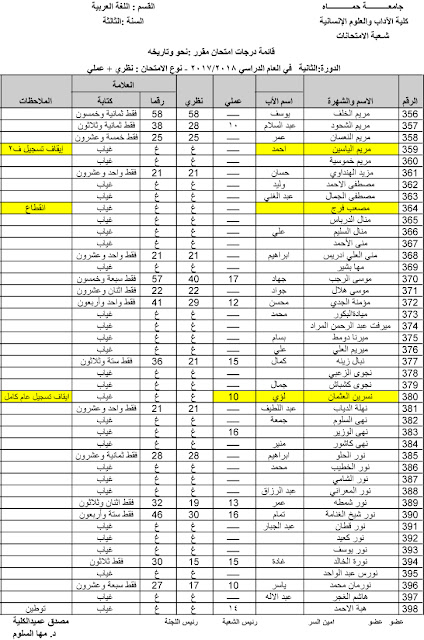 جامعـــــة حمـــــاه
القسم : اللغة العربية
كلية الآداب والعلوم الإنسانية
السنة :الثالثة
شعبة الامتحانات
قائمة درجات امتحان مقرر :نحو وتاريخه
الدورة:الثانية في العام الدراسي ٢٠١٧/٢٠١٨ - نوع الامتحان : نظري + عملي
الرقم الاسم والشهرة اسم الأب عملي نظري العلامة رقما كتابة الملاحظات
356 مريم الخلف يوسف — 58 58 فقط ثمانية وخمسون
357 مريم الشحود عبد السلام ١٠ 28 38 فقط ثمانية وثلاثون
358 مريم النعسان عمر — 25 25 فقط خمسة وعشرون
359 مريم الياسين احمد — غ غ غياب إيقاف تسجيل ف٢
360 مريم خموسية — غ غ غياب
361 مزيد الهنداوي حسان — 21 21 فقط واحد وعشرون
362 مصطفى الاحمد وليد — غ غ غياب
363 مصطفى الجمال عبد الغني — غ غ غياب
364 مصعب فرج — غ غ غياب انقطاع
365 منال الدرباس — غ غ غياب
366 منال السليم علي — غ غ غياب
367 منى الأحمد — غ غ غياب
368 منى العلي ادريس ابراهيم — 21 21 فقط واحد وعشرون
369 مها بشير — غ غ غياب
370 موسى الرجب جهاد 17 40 57 فقط سبعة وخمسون
371 موسى هلال جواد — 22 22 فقط اثنان وعشرون
372 مؤمنة الجدي محسن 12 29 41 فقط واحد وأربعون
373 ميادةالبكور محمد — غ غ غياب
374 ميرفت عبد الرحمن المراد — غ غ غياب
375 ميرنا دومط بسام — غ غ غياب
376 ميريم العلي علي — غ غ غياب
377 نبال زينه كمال 15 21 36 فقط ستة وثلاثون
378 نجوى الزعبي — غ غ غياب
379 نجوى كشباش جمال — غ غ غياب
380 نسرين العثمان لؤي 10 غ غ غياب ايقاف تسجيل عام كامل
381 نهلة الدياب عبد اللطيف — 21 21 فقط واحد وعشرون
382 نهى السلوم جمعة — غ غ غياب
383 نهى الوزير 16 غ غ غياب
384 نهى كاشور منير — غ غ غياب
385 نور الحلو ابراهيم — 28 28 فقط ثمانية وعشرون
386 نور الخطيب محمد — غ غ غياب
387 نور الشامي — غ غ غياب
388 نور المعراني عبد الرزاق — غ غ غياب
389 نور شمطه عمر 13 19 32 فقط اثنان وثلاثون
390 نور شيخ الغنامة تمام 16 30 46 فقط ستة وأربعون
391 نور قطان عبد الجبار — غ غ غياب
392 نور كعيد — غ غ غياب
393 نور يوسف — غ غ غياب
394 نورة الخالد غادة 15 15 30 فقط ثلاثون
395 نورس عبد الواحد — غ غ غياب
396 نورمان محمد ياسر 10 17 27 فقط سبعة وعشرون
397 هاشم الغجر عبد الاله — غ غ غياب
398 هبة الاحمد ١٤ غ غ غياب توطين
عضو عضو امين السر رئيس الشعبة رئيس اللجنة مصدق عميدالكلية
د. مها السلوم